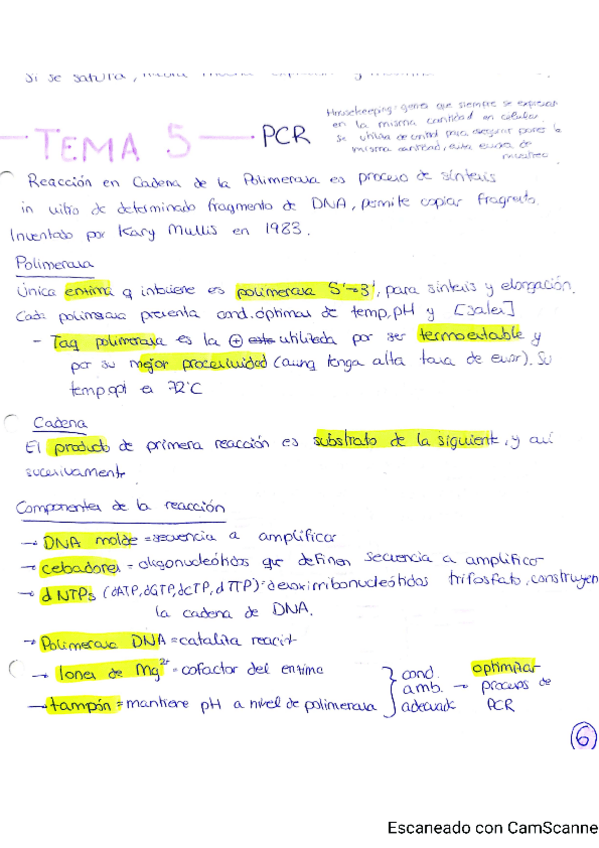 Si se satura,
Housekeeping: genes que siempre se expresan
en la misma cantidad en células
se utiliza de control para asegurar poner la
misma cantidad, esta en
muestreo
TEMA 5 PCR
Reacción en Cadena de la Polimerasa es proceso de síntesis
in vitro de determinado fragmento de DNA, permite copiar fragmto.
Inventado por Kary Mullis en 1983.
Polimerasa
Única enzima q interviene es polimerasa 5'→3', para síntesis y elongación.
Cada polimerasa presenta cond. óptimas de temp, pH y [sales]
- Taq polimerasa es la ⊕ utilizada por ser termoestable y
por su mejor procesividad (aunq tenga alta tasa de error). Su
temp.opt es 72°C
Cadena
El producto de primera reacción es substrato de la siguiente, y así
sucesivamente.
Componentes de la reacción
→ DNA molde = secuencia a amplificar
→ cebadores = oligonucleótidos que definen secuencia a amplificar
→ dNTPs (dATP, dGTP, dCTP, dTTP): desoxirribonucleótidos trifosfato, construyen
la cadena de DNA.
→ Polimerasa DNA = cataliza
→ Iones de Mg²⁺ = cofactor del enzima
→ tampón = mantiene pH a nivel de polimerasa
cond. optimizar
amb. → procesos de
adecuada PCR
6
Escaneado con CamScanne